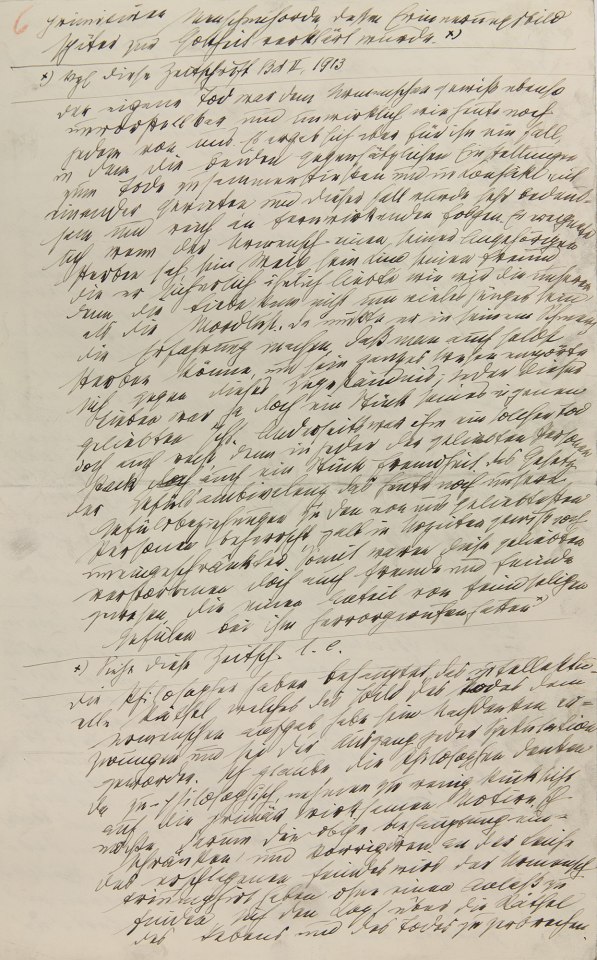 primitiven Menschenhorde, dessen Erinnerungsbild
später zur Gottheit verklärt wurde. x)
x) Vgl diese Zeitschrift Bd II, 1913
Der eigene Tod war dem Urmenschen gewiß ebenso
unvorstellbar und unwirklich wie heute noch
jedem von uns. Es ergab sich aber für ihn ein Fall,
in dem die beiden gegensätzlichen Einstellungen
zum Tode zusammenstießen und in Konflikt mit
einander gerieten und dieser Fall wurde sehr bedeut-
sam und reich an fernwirkenden Folgen. Er ereignete
sich wenn der Urmensch einen seiner Angehörigen
sterben sah, sein Weib sein Kind seinen Freund
die er sicherlich ähnlich liebte wie wir die unseren
denn die Liebe kann nicht um vieles jünger sein
als die Mordlust. Da mußte er in seinem Schmerz
die Erfahrung machen, daß man auch selbst
sterben könne, und sein ganzes Wesen empörte
sich gegen dieses Zugeständnis; jeder dieser
Lieben war ja doch ein Stück seines eigenen
geliebten Ichs. Anderseits war ihm ein solcher Tod
doch auch recht, denn in jeder der geliebten Personen
stack auch ein Stück Fremdheit. Das Gesetz
der Gefühlsambivalenz das heute noch unsere
Gefühlsbeziehungen zu den von uns geliebtesten
Personen beherrscht, galt in Urzeiten gewiß noch
uneingeschränkter. Somit waren diese geliebten
Verstorbenen doch auch Fremde und Feinde
gewesen, die einen Anteil von feindseligen
Gefühlen bei ihm hervorgerufen hatten x)
x) Siehe diese Zeitsch. l. c.
Die Philosophen haben behauptet, das intellektu-
elle Rätsel, welches das Bild des Todes dem
Urmenschen aufgab, habe sein Nachdenken er-
zwungen und sei der Ausgang jeder Spekulation
geworden. Ich glaube, die Philosophen denken
da zu philosophisch, nehmen zu wenig Rücksicht
auf die primär wirksamen Motive. Ich
möchte darum die obige Behauptung ein-
schränken und korrigiren: an der Leiche
des erschlagenen Feindes wird der Urmensch
triumphirt haben ohne einen Anlaß zu
finden, sich den Kopf über die Rätsel
des Lebens und des Todes zu zerbrechen.